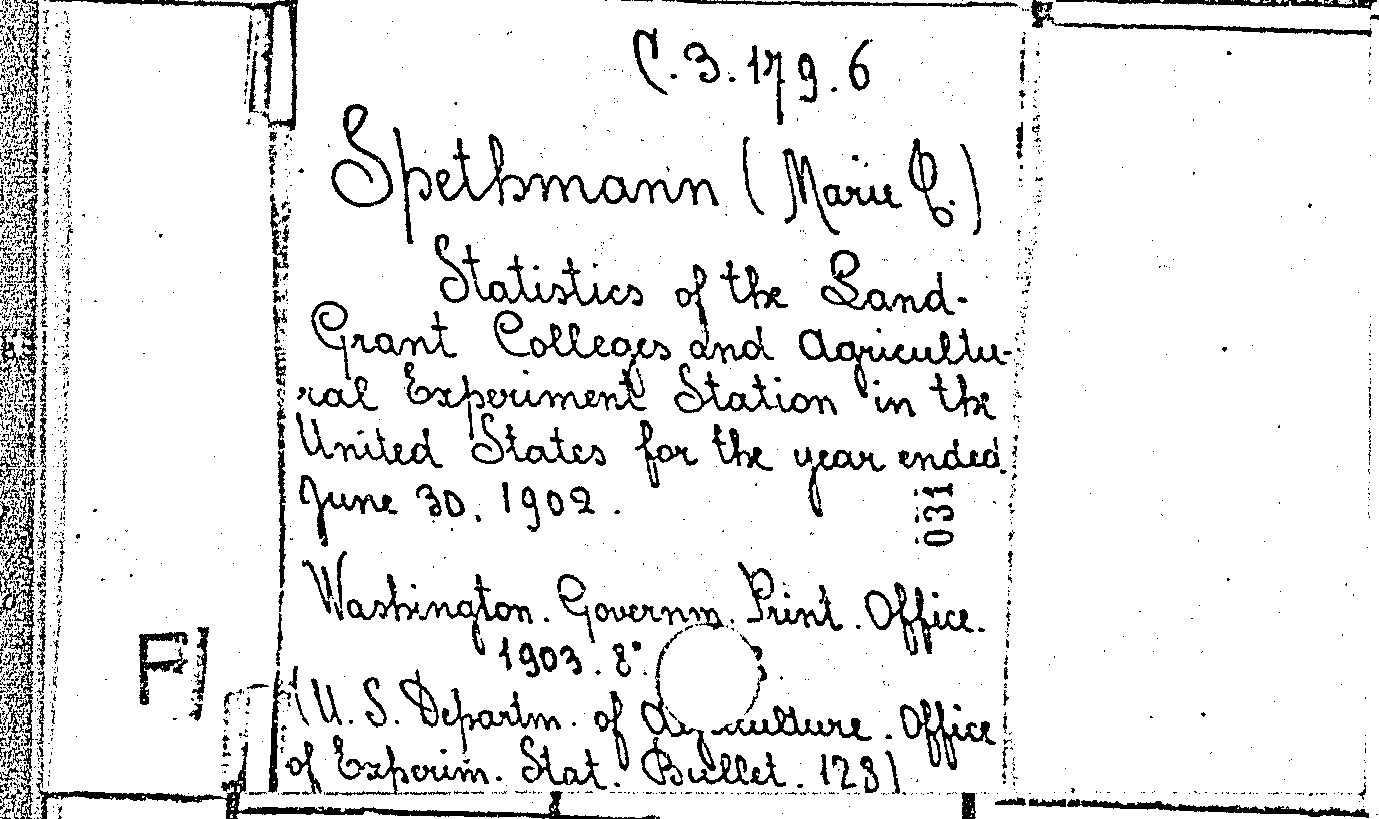 C.3.179.6
Spethmann (Marie T.)
Statistics of the Land-
Grant Colleges and Agricultu-
ral Experiment Station in the
United States for the year ended
June 30. 1902.
031
Washington. Governm. Print. Office.
1903. 8°.
(U. S. Departm. of Agriculture. Office
of Experim. Stat. Bullet. 123)